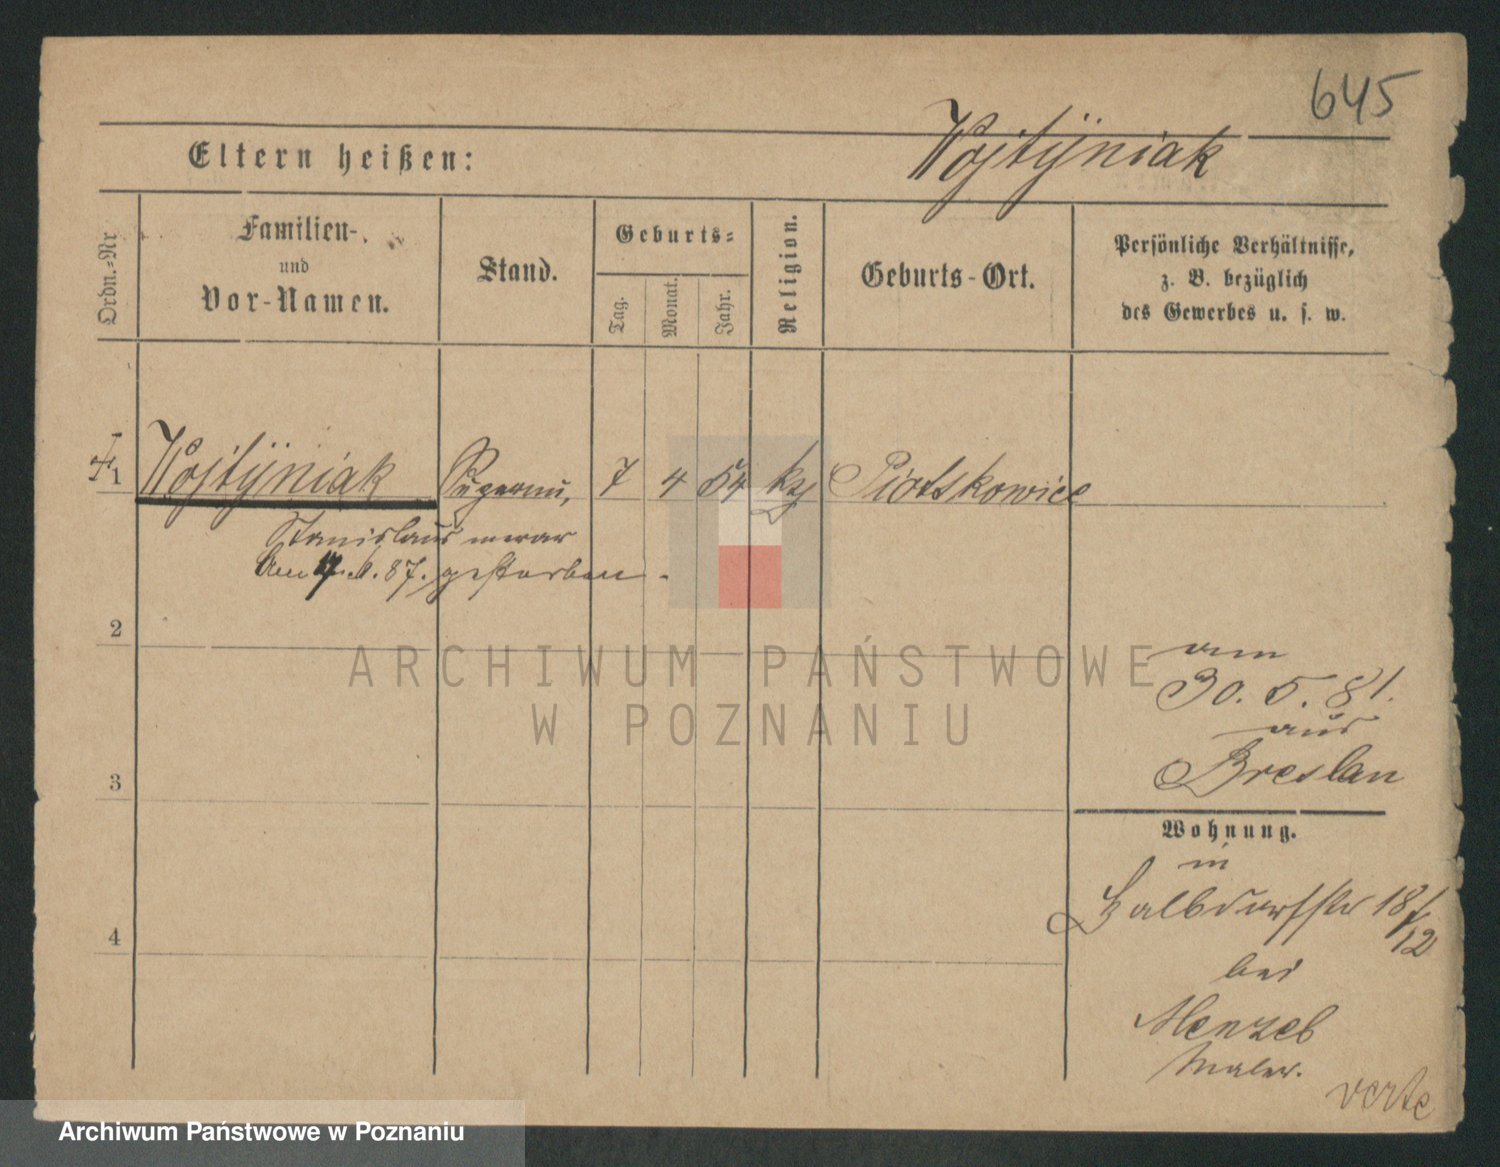 645
Wojtÿniak
Eltern heißen:
Ordn.-Nr
Familien-
und
Vor-Namen.
Stand.
Geburts-
Tag.
Monat.
Jahr.
Religion.
Geburts-Ort.
Persönliche Verhältnisse,
z. B. bezüglich
des Gewerbes u. s. w.
1 Wojtÿniak 7 4 54 Piotskowice
Stanislaus
87. gestorben.
2
am
30. 5. 81.
aus
Breslau
3
Wohnung.
in
Halbdorfstr 18/12
4
bei
Menzel
Maler.
verte
ARCHIWUM PAŃSTWOWE
W POZNANIU
Archiwum Państwowe w Poznaniu